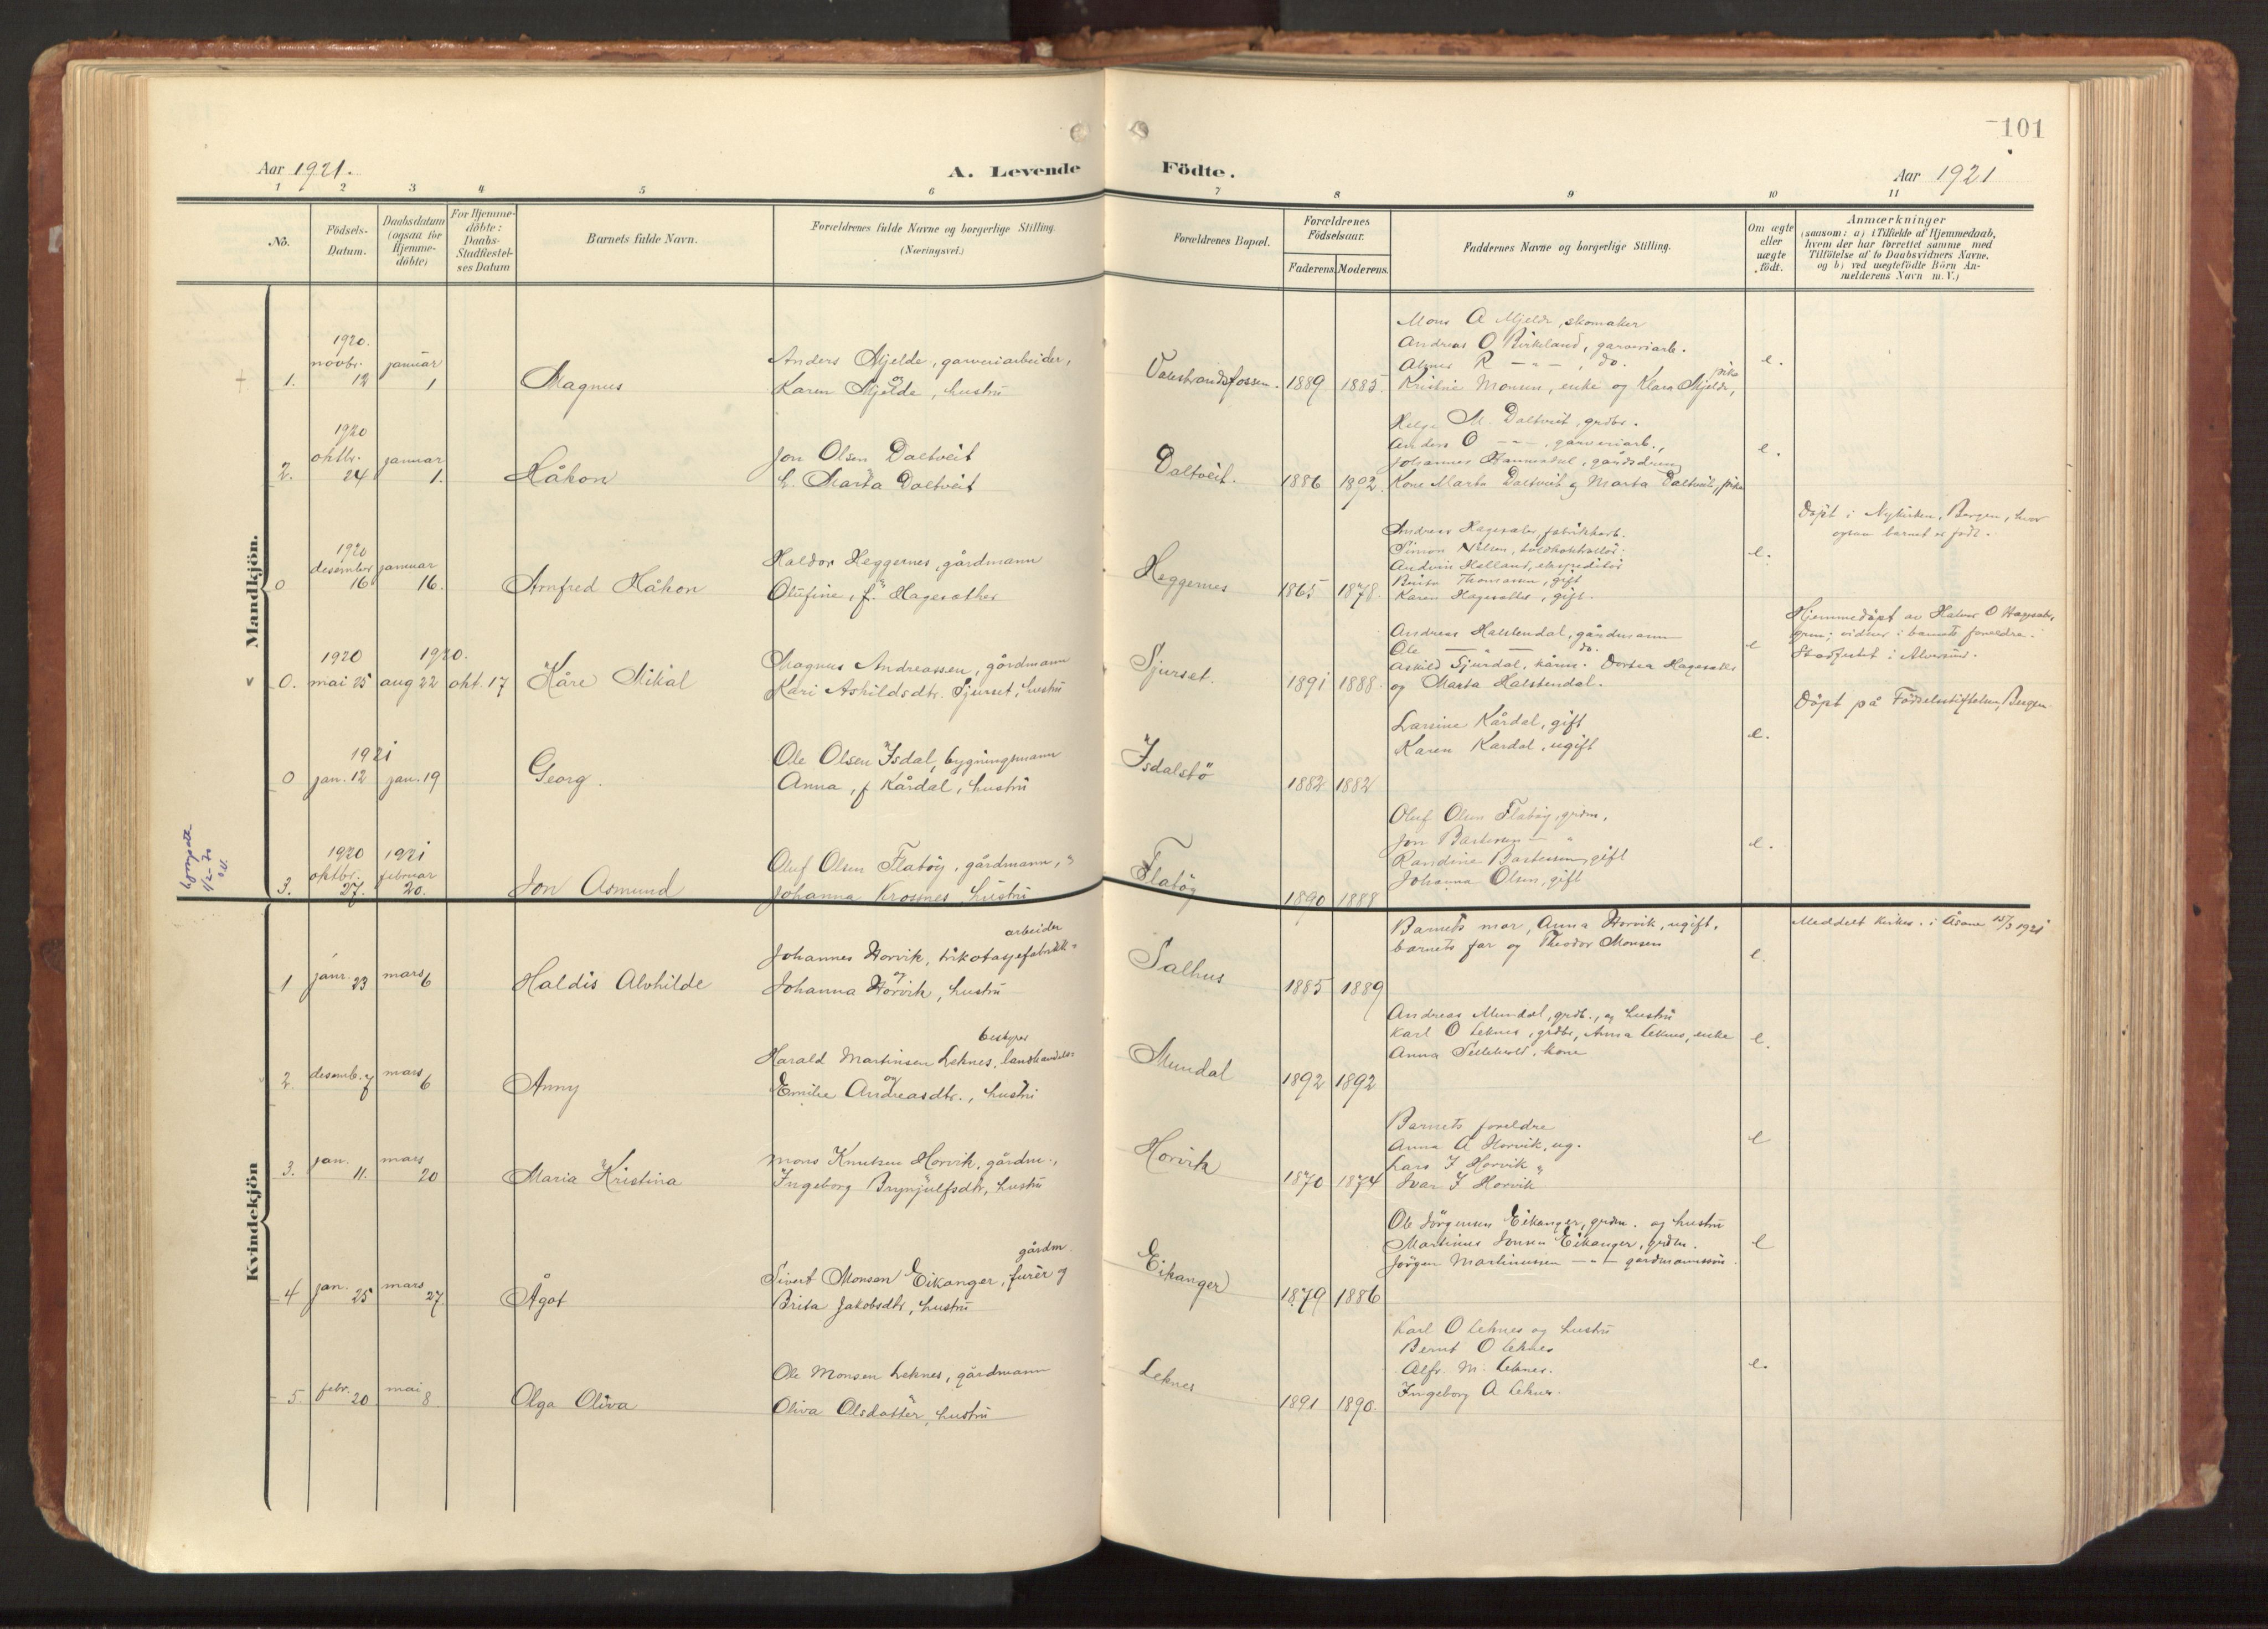 101
Aar 1921.
A. Levende Födte.
Aar 1921
1 2 3 4 5 6 7 8 9 10 11
No.
Födsels-
Datum.
Daabsdatum
(ogsaa for
Hjemme-
döbte)
For Hjemme-
döbte:
Daabs-
Stadfæstel-
ses Datum
Barnets fulde Navn.
Forældrenes fulde Navne og borgerlige Stilling.
(Næringsvei.)
Forældrenes Bopæl.
Forældrenes
Födselsaar.
Faderens.
Moderens.
Faddernes Navne og borgerlige Stilling.
Om ægte
eller
uægte
födt.
Anmærkninger
(saasom: a) i Tilfælde af Hjemmedaab,
hvem der har forrettet samme med
Tilföielse af to Daabsvidners Navne,
og b) ved uægtefödte Börn An-
melderens Navn m. V.)
Mandkjön.
1920.
novbr. januar
1. 12 1 Magnus
Anders Mjelde, garveriarbeider,
og
Karen Mjelde, hustru
Valestrandsfossen. 1889 1885.
Mons A Mjelde, skomaker
Andreas O Birkeland, garveriarb.
Agnes R — " — , do.
pike
Kristine Monsen, enke og Klara Mjelde,
e.
1920
oktbr. januar
2. 24 1. Håkon
Jon Olsen Daltveit
h. Marta Daltveit
Daltveit. 1886 1892.
Helge M. Daltveit, grdbr.
Anders O — " — , garveriarb.,
Johannes , gårdsdreng
Kone Marta Daltveit og Marta Daltveit, pike
e.
1920
desember januar
0 16 16. Arnfred Håkon
Haldor Heggernes, gårdmann
Olufine, f. Hagesæther
Heggernes 1865 1878.
Andreas Hagesæter, fabrikkarb.
Simon Nilsen, toldkontrollör.
Audvin Helland, ekspeditör
Brita Thomassen, gift
Karen Hagesæter, gift.
e.
Döpt i Nykirken, Bergen, hvor
ogsaa barnet er födt.
1920 1920.
v 0. mai 25 aug 22 okt. 17 Kåre Mikal
Magnus Andreassen, gårdmann
Kari Askildsdtr. Sjurset, hustru
Sjurset. 1891 1888.
Andreas Halstendal, gårdmann
Ole — " — do.
Askild Sjurdal, kårm. Dortea Hagesæter
og Marta Halstendal.
e
Hjemmedöpt av Halvor O Hagesæter,
grm; vidner: barnets foreldre.
Stadfestet i Alversund.
1921
0 jan. 12 jan. 19 Georg.
Ole Olsen Isdal, bygningsmann
Anna, f Kårdal, hustru
Isdalstö 1882 1882
Larsine Kårdal, gift
Karen Kårdal, ugift
e.
Döpt på Födselsstiftelsen, Bergen.
1920 1921
oktbr. februar
3. 27. 20. Jon Asmund
Oluf Olsen Flatöy, gårdmann, og
Johanna Krossnes hustru
Flatöy 1890 1888
Oluf Olsen Flatöy, grdm.
Jon Bastesen — "
Randine Bastesen, gift
Johanna Olsen, gift
e.
Kvindekjön
1 janr. 23 mars 6 Haldis Alvhilde
arbeider
Johannes Horvik, trikotasjefabrikk-
og
Johanna Horvik, hustru
Salhus 1885 1889
Barnets mor, Anna Horvik, ugift,
barnets far og Theodor Monsen
e.
Meddelt kirkeb. i Åsane 15/3 1921
2. desemb. 7 mars 6 Anny
bestyrer
Harald Martinsen Leknes, landhandels-
og
Emilie Andreasdtr., hustru
Mundal 1892 1892
Andreas Mundal, grdb., og hustru
Karl O Leknes, grdbr, Anna Leknes, enke
Anna Sellevold, kone
e.
3. jan. 11. mars 20 Maria Kristina
Mons Knutsen Horvik, gårdm.,
Ingeborg Brynjulfsdtr, hustru
Horvik 1870 1874
Barnets foreldre
Anna A Horvik, ug.
Lars I Horvik "
Ivar I Horvik
e
4 jan. 25 mars 27 Ågot
gårdm.
Sivert Monsen Eikanger, furér og
Brita Jakobsdtr, hustru
Eikanger 1879 1886
Ole Jörgensen Eikanger, grdm. og hustru
Martinus Jonsen Eikanger, grdm.
Jörgen Martinussen — " — gårdmannssön.
e
5. febr. 20 mai 8 Olga Oliva
Ole Monsen Leknes, gårdmann
Oliva Olsdatter, hustru
Leknes 1891 1890.
Karl O Leknes og hustru
Bernt O Leknes
Alfr. M. Leknes.
Ingeborg A Leknes.
e.